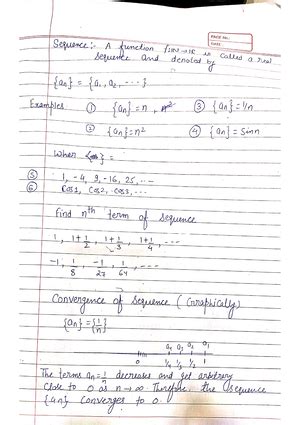 PAGE No.:
DATE:
Sequence:- A function f:ℕ→ℝ is called a real
sequence and denoted by
{an} = {a1, a2, ----}
Examples ① {an} = n, ③ {an} = 1/n
② {an} = n² ④ {an} = Sinn
When {an} =
⑤ 1, -4, 9, -16, 25, ...
⑥ Cos1, Cos2, Cos3, ---
Find nth term of sequence
1, 1+1/2, 1+1/3, 1+1/4, ---
-1, 1/8, -1/27, 1/64, ---
Convergence of Sequence (Graphically)
{an} = {1/n}
a4 a3 a2 a1
0 1/4 1/3 1/2 1
The terms an = 1/n decreases and get arbitrary
close to 0 as n→∞ Therefore, the sequence
{an} Converges to 0.